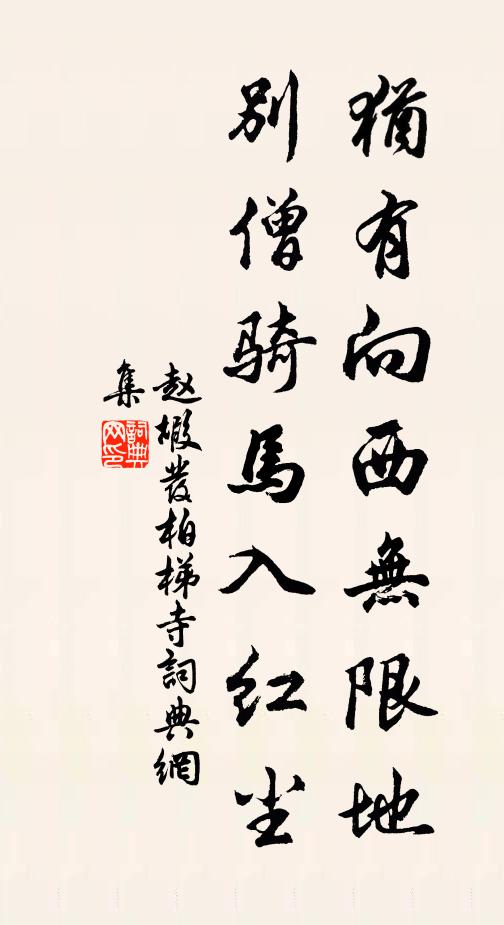 猶有向西無限地
別僧騎馬入红尘
赵嘏發柏梯寺詞典網
集
詞典
网印